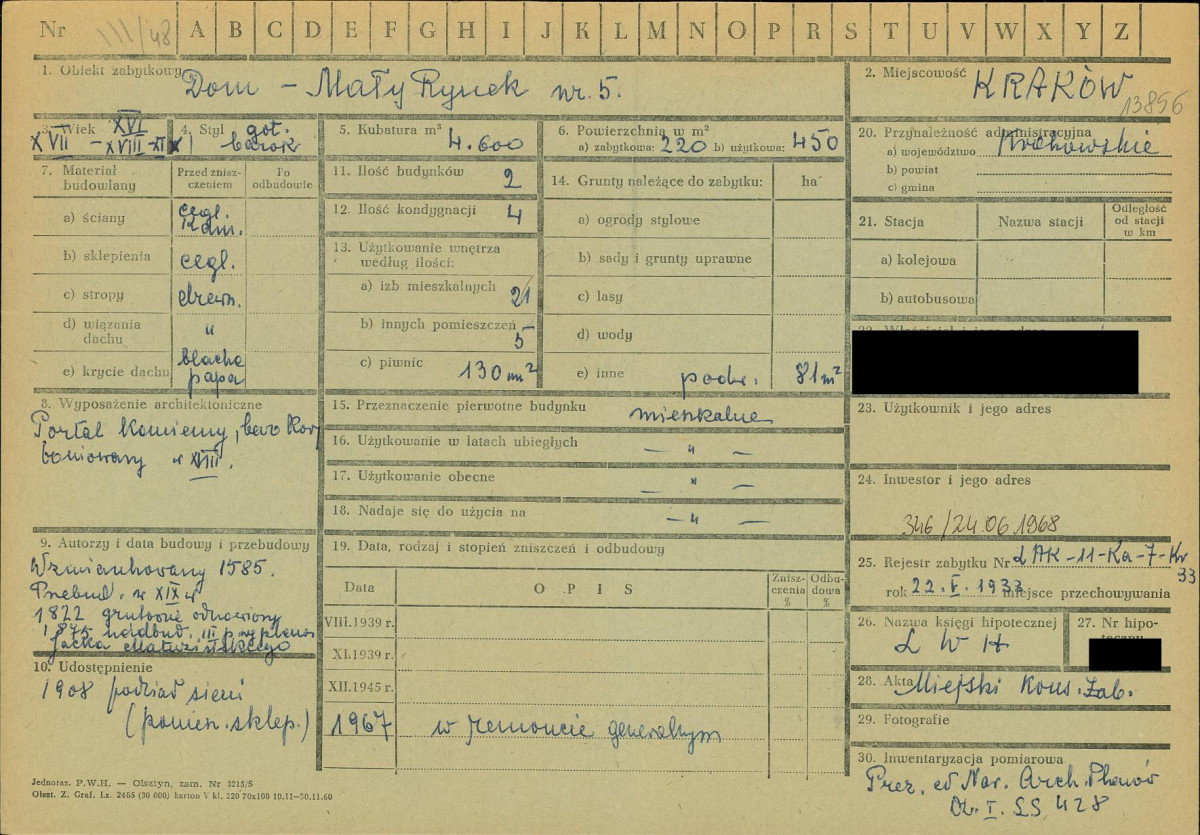 Nr III/48 A B C D E F G H I J K L M N O P R S T U V W X Y Z
1. Obiekt zabytkowy Dom – Mały Rynek nr. 5.
2. Miejscowość KRAKÓW
13856
3. Wiek XVI
XVII – XVIII – XIX
4. Styl got.
barok
5. Kubatura m³ 4.600
6. Powierzchnia w m²
a) zabytkowa: 220 b) użytkowa: 450
7. Materiał budowlany
Przed zniszczeniem
Po odbudowie
a) ściany cegl. kam.
b) sklepienia cegl.
c) stropy drewn.
d) wiązania dachu "
e) krycie dachu blacha papa
8. Wyposażenie architektoniczne
Portal kamienny, barokowy
boniowany w XVIII.
9. Autorzy i data budowy i przebudowy
Wzmiankowany 1585.
Przebud. w XIX w
1822 gruntownie odnowiony
1875 nadbud. III p. wg planów
Jacka Matusińskiego
10. Udostępnienie
1908 podział sieni
(pomien. sklep.)
11. Ilość budynków 2
12. Ilość kondygnacji 4
13. Użytkowanie wnętrza
według ilości:
a) izb mieszkalnych 21
b) innych pomieszczeń 5
c) piwnic 130 m²
14. Grunty należące do zabytku: ha
a) ogrody stylowe
b) sady i grunty uprawne
c) lasy
d) wody
e) inne podw. 81 m²
15. Przeznaczenie pierwotne budynku mieszkalne
16. Użytkowanie w latach ubiegłych — " —
17. Użytkowanie obecne — " —
18. Nadaje się do użycia na — " —
19. Data, rodzaj i stopień zniszczeń i odbudowy
Data O P I S Zniszczenia % Odbudowa %
VIII.1939 r.
XI.1939 r.
XII.1945 r.
1967 w remoncie generalnym
20. Przynależność administracyjna
a) województwo Krakowskie
b) powiat
c) gmina
21. Stacja Nazwa stacji Odległość od stacji w km
a) kolejowa
b) autobusowa
23. Użytkownik i jego adres
24. Inwestor i jego adres
346/24.06.1968
25. Rejestr zabytku Nr LAK-11-Ka-7-Kr
33
rok 22.V.1933 miejsce przechowywania
26. Nazwa księgi hipotecznej
L W H
27. Nr hipoteczny
28. Akta Miejski Kons. Zab.
29. Fotografie
30. Inwentaryzacja pomiarowa
Prez. Nar. Arch. Planów
Dz. I. LS 428
Jednoraz. P.W.H. — Olsztyn, zam. Nr 3215/S
Olszt. Z. Graf. Lz. 2465 (30 000) karton V kl. 220 70x100 10.11—30.11.60